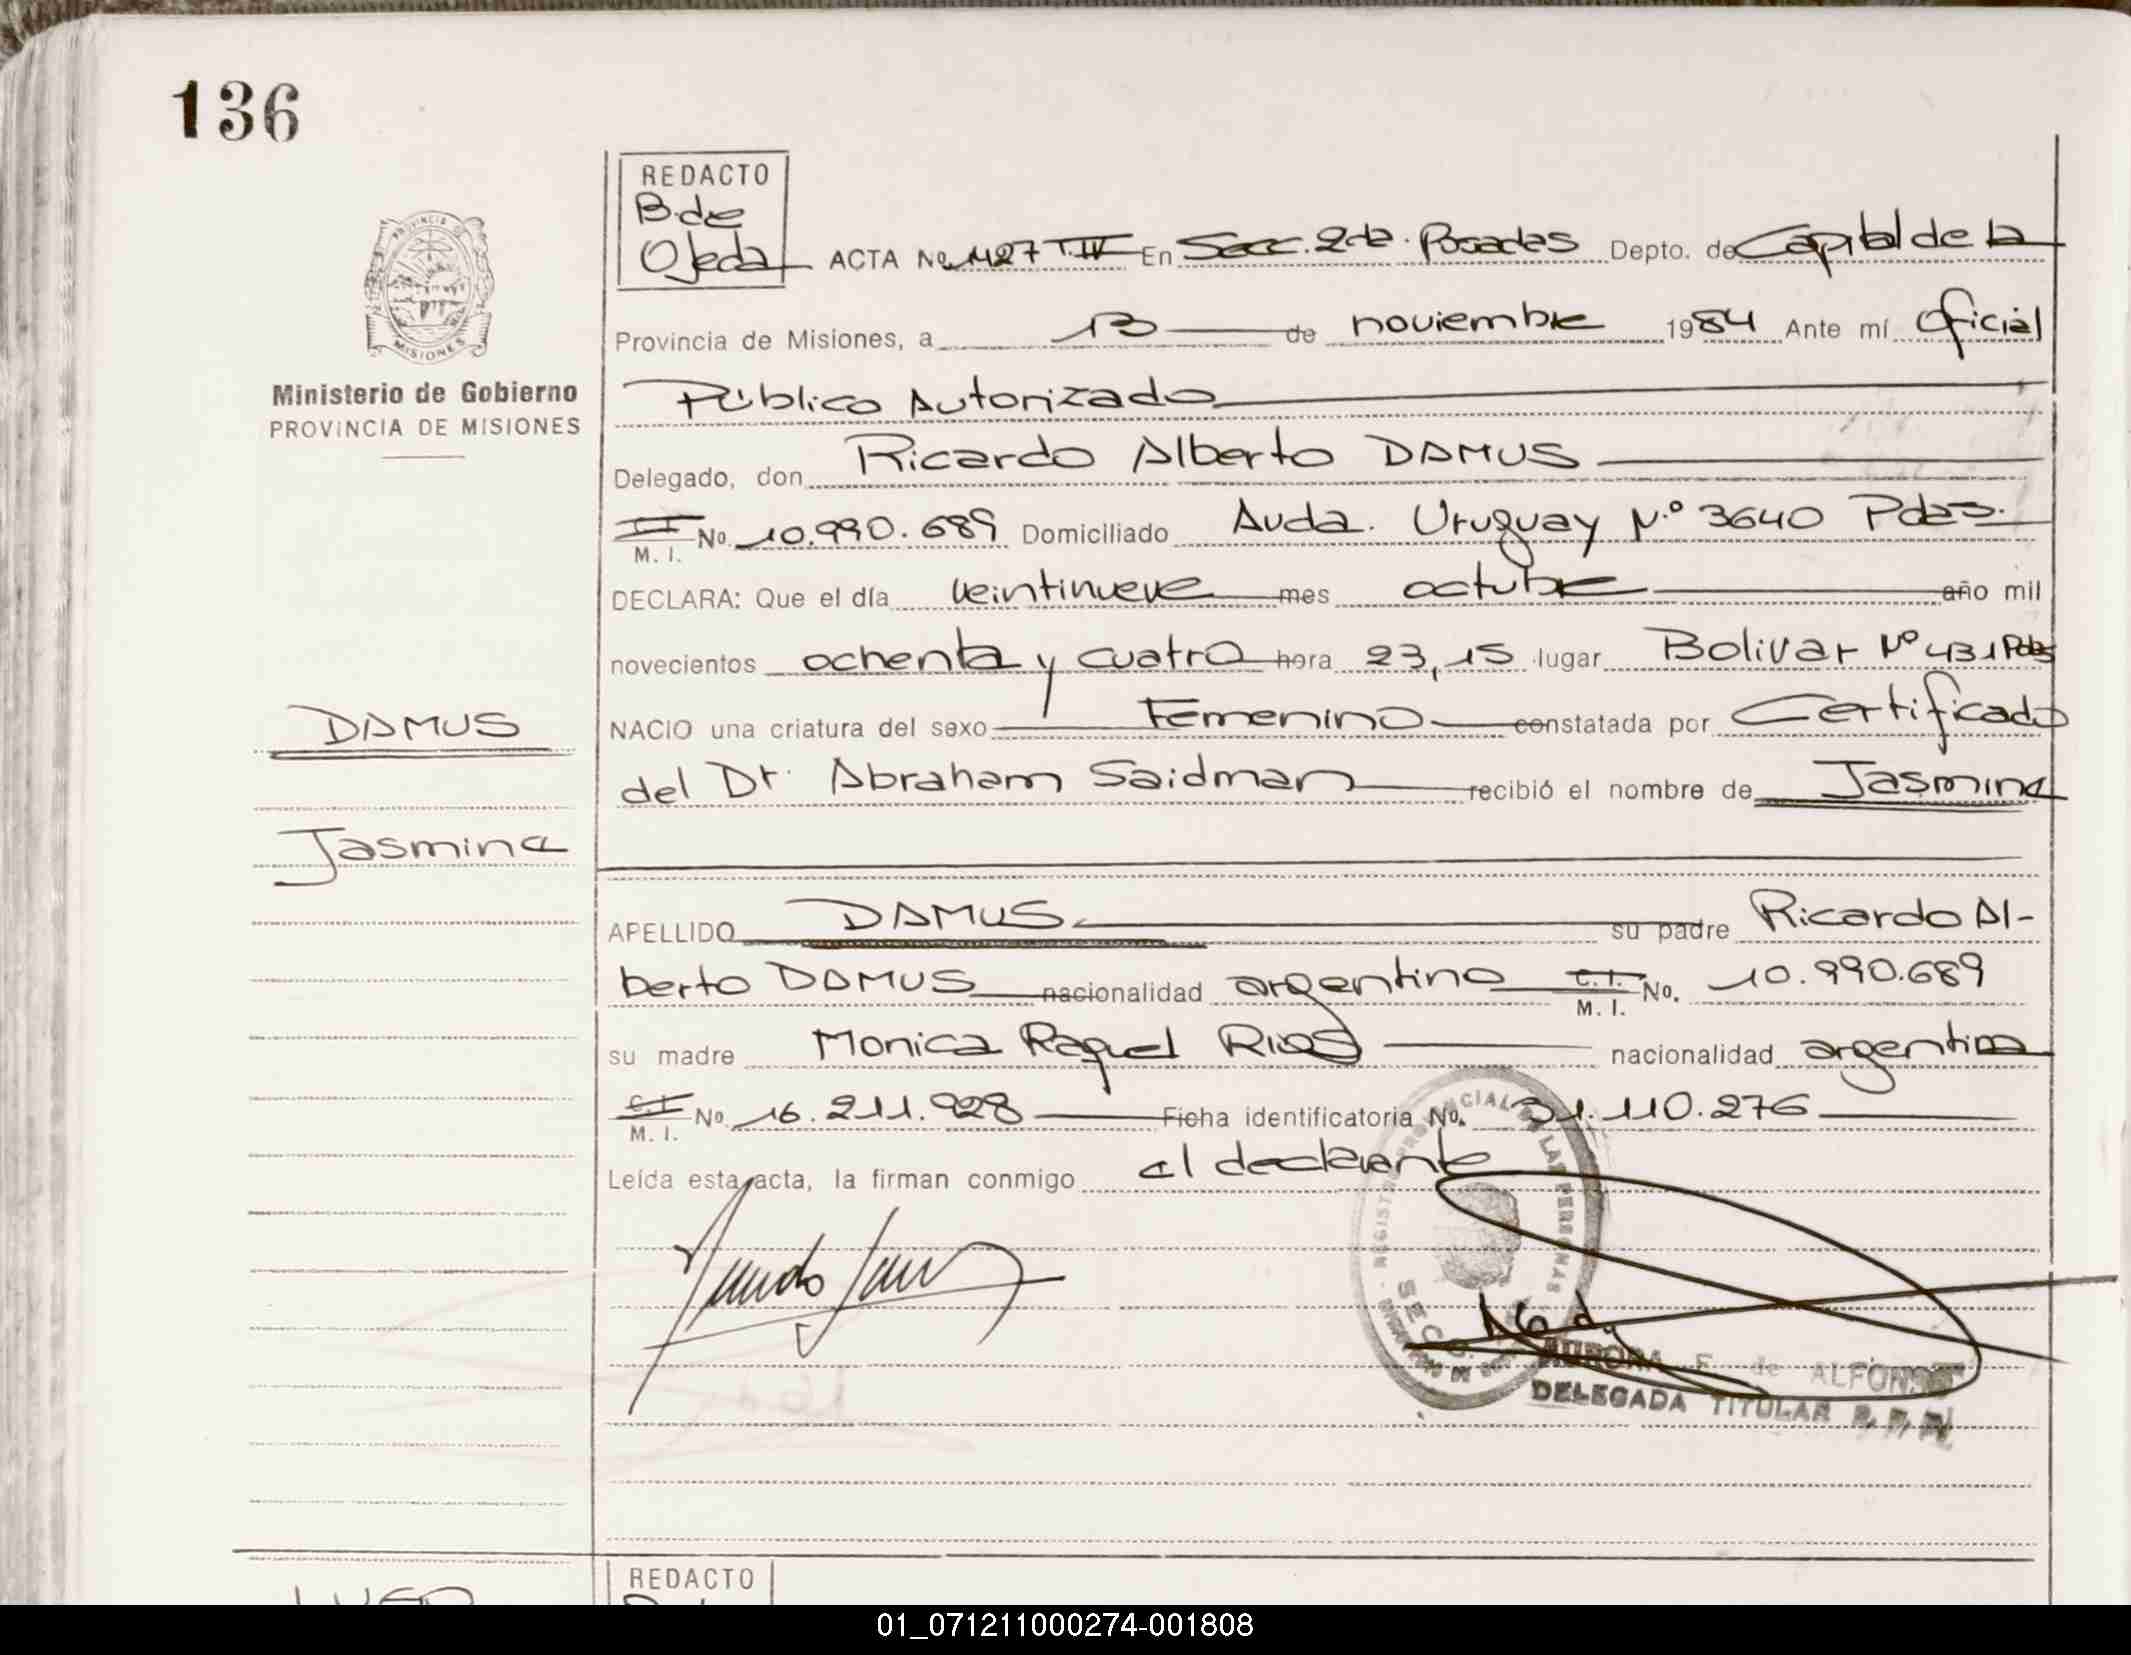 136
PROVINCIA
MISIONES
Ministerio de Gobierno
PROVINCIA DE MISIONES
REDACTO
B. de
Ojeda
ACTA No 1127 T. IV En Secc. 2da. Posadas Depto. de Capital de la
Provincia de Misiones, a 13 de noviembre 1984 Ante mí Oficial
Público Autorizado
Delegado, don Ricardo Alberto DAMUS
M. I. No. 10.990.689 Domiciliado Avda. Uruguay N.º 3640 Pdas.
DECLARA: Que el día veintinueve mes octubre año mil
novecientos ochenta y cuatro hora 23,15 lugar Bolivar Nº 431 Pdas
DAMUS
NACIO una criatura del sexo Femenino constatada por Certificado
del Dr. Abraham Saidman recibió el nombre de Jasmina
Jasmina
APELLIDO DAMUS su padre Ricardo Al-
berto DAMUS nacionalidad argentino C. I. M. I. No. 10.990.689
su madre Monica Raquel Rios nacionalidad argentina
C. I. M. I. No. 16.211.928 Ficha identificatoria No. 31.110.276
Leída esta acta, la firman conmigo el declarante
AURORA F. de ALFONSO
DELEGADA TITULAR
REDACTO
01_071211000274-001808